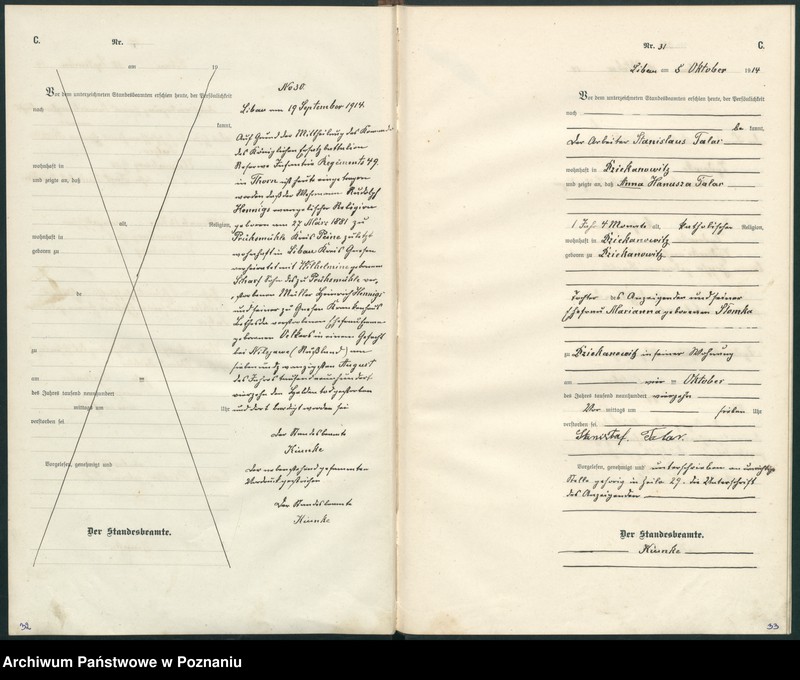 C.
Nr.
am 19
Vor dem unterzeichneten Standesbeamten erschien heute, der Persönlichkeit
nach
kannt,
wohnhaft in
und zeigte an, daß
alt, Religion,
wohnhaft in
geboren zu
de
zu
am ten
des Jahres tausend neunhundert
mittags um Uhr
verstorben sei
Vorgelesen, genehmigt und
Der Standesbeamte.
No 30.
Libau am 19 September 1914.
Auf Grund der Mittheilung des Kommandos
des Königlichen Ersatz bataillon
Reserve Infanterie Regiments 49
in Thorn ist heute eingetragen
worden daß der Wehrmann Rudolph
Hennigs evangelischer Religion
geboren am 27 März 1881 zu
Kreis Peine zuletzt
wohnhaft in Libau Kreis Gnesen
verheiratet mit Wilhelmine geborenen
Sohn des zu ver-
storbenen Müller Heinrich Hennigs
und seiner zu Gnesen Krankenhaus
Bethesda verstorbenen Ehefrau
geborenen in einem Gefecht
bei (Rußland) am
sieben und zwanzigsten August
des Jahres tausend neunhundert
vierzehn den Heldentod gestorben
und dort beerdigt worden sei
Der Standesbeamte
Hinnke
Der nebenstehend
Vordruck gestrichen
Der Standesbeamte
Hinnke
32
Nr. 31
C.
Libau am 5 Oktober 1914
Vor dem unterzeichneten Standesbeamten erschien heute, der Persönlichkeit
nach
be kannt,
Der Arbeiter Stanislaus Talar
wohnhaft in Dziekanowitz
und zeigte an, daß Anna Hanusza Talar
1 Jahr 4 Monate alt, katholischer Religion,
wohnhaft in Dziekanowitz
geboren zu Dziekanowitz
Tochter des Anzeigenden und seiner
Ehefrau Marianna geborenen Slomka
zu Dziekanowitz in seiner Wohnung
am vier ten Oktober
des Jahres tausend neunhundert vierzehn
Vor mittags um sieben Uhr
verstorben sei
Talar.
Vorgelesen, genehmigt und unterschrieben an unrichtiger
Stelle gehörig in Zeile 29. die Unterschrift
des Anzeigenden
Der Standesbeamte.
Hinnke
33
Archiwum Państwowe w Poznaniu